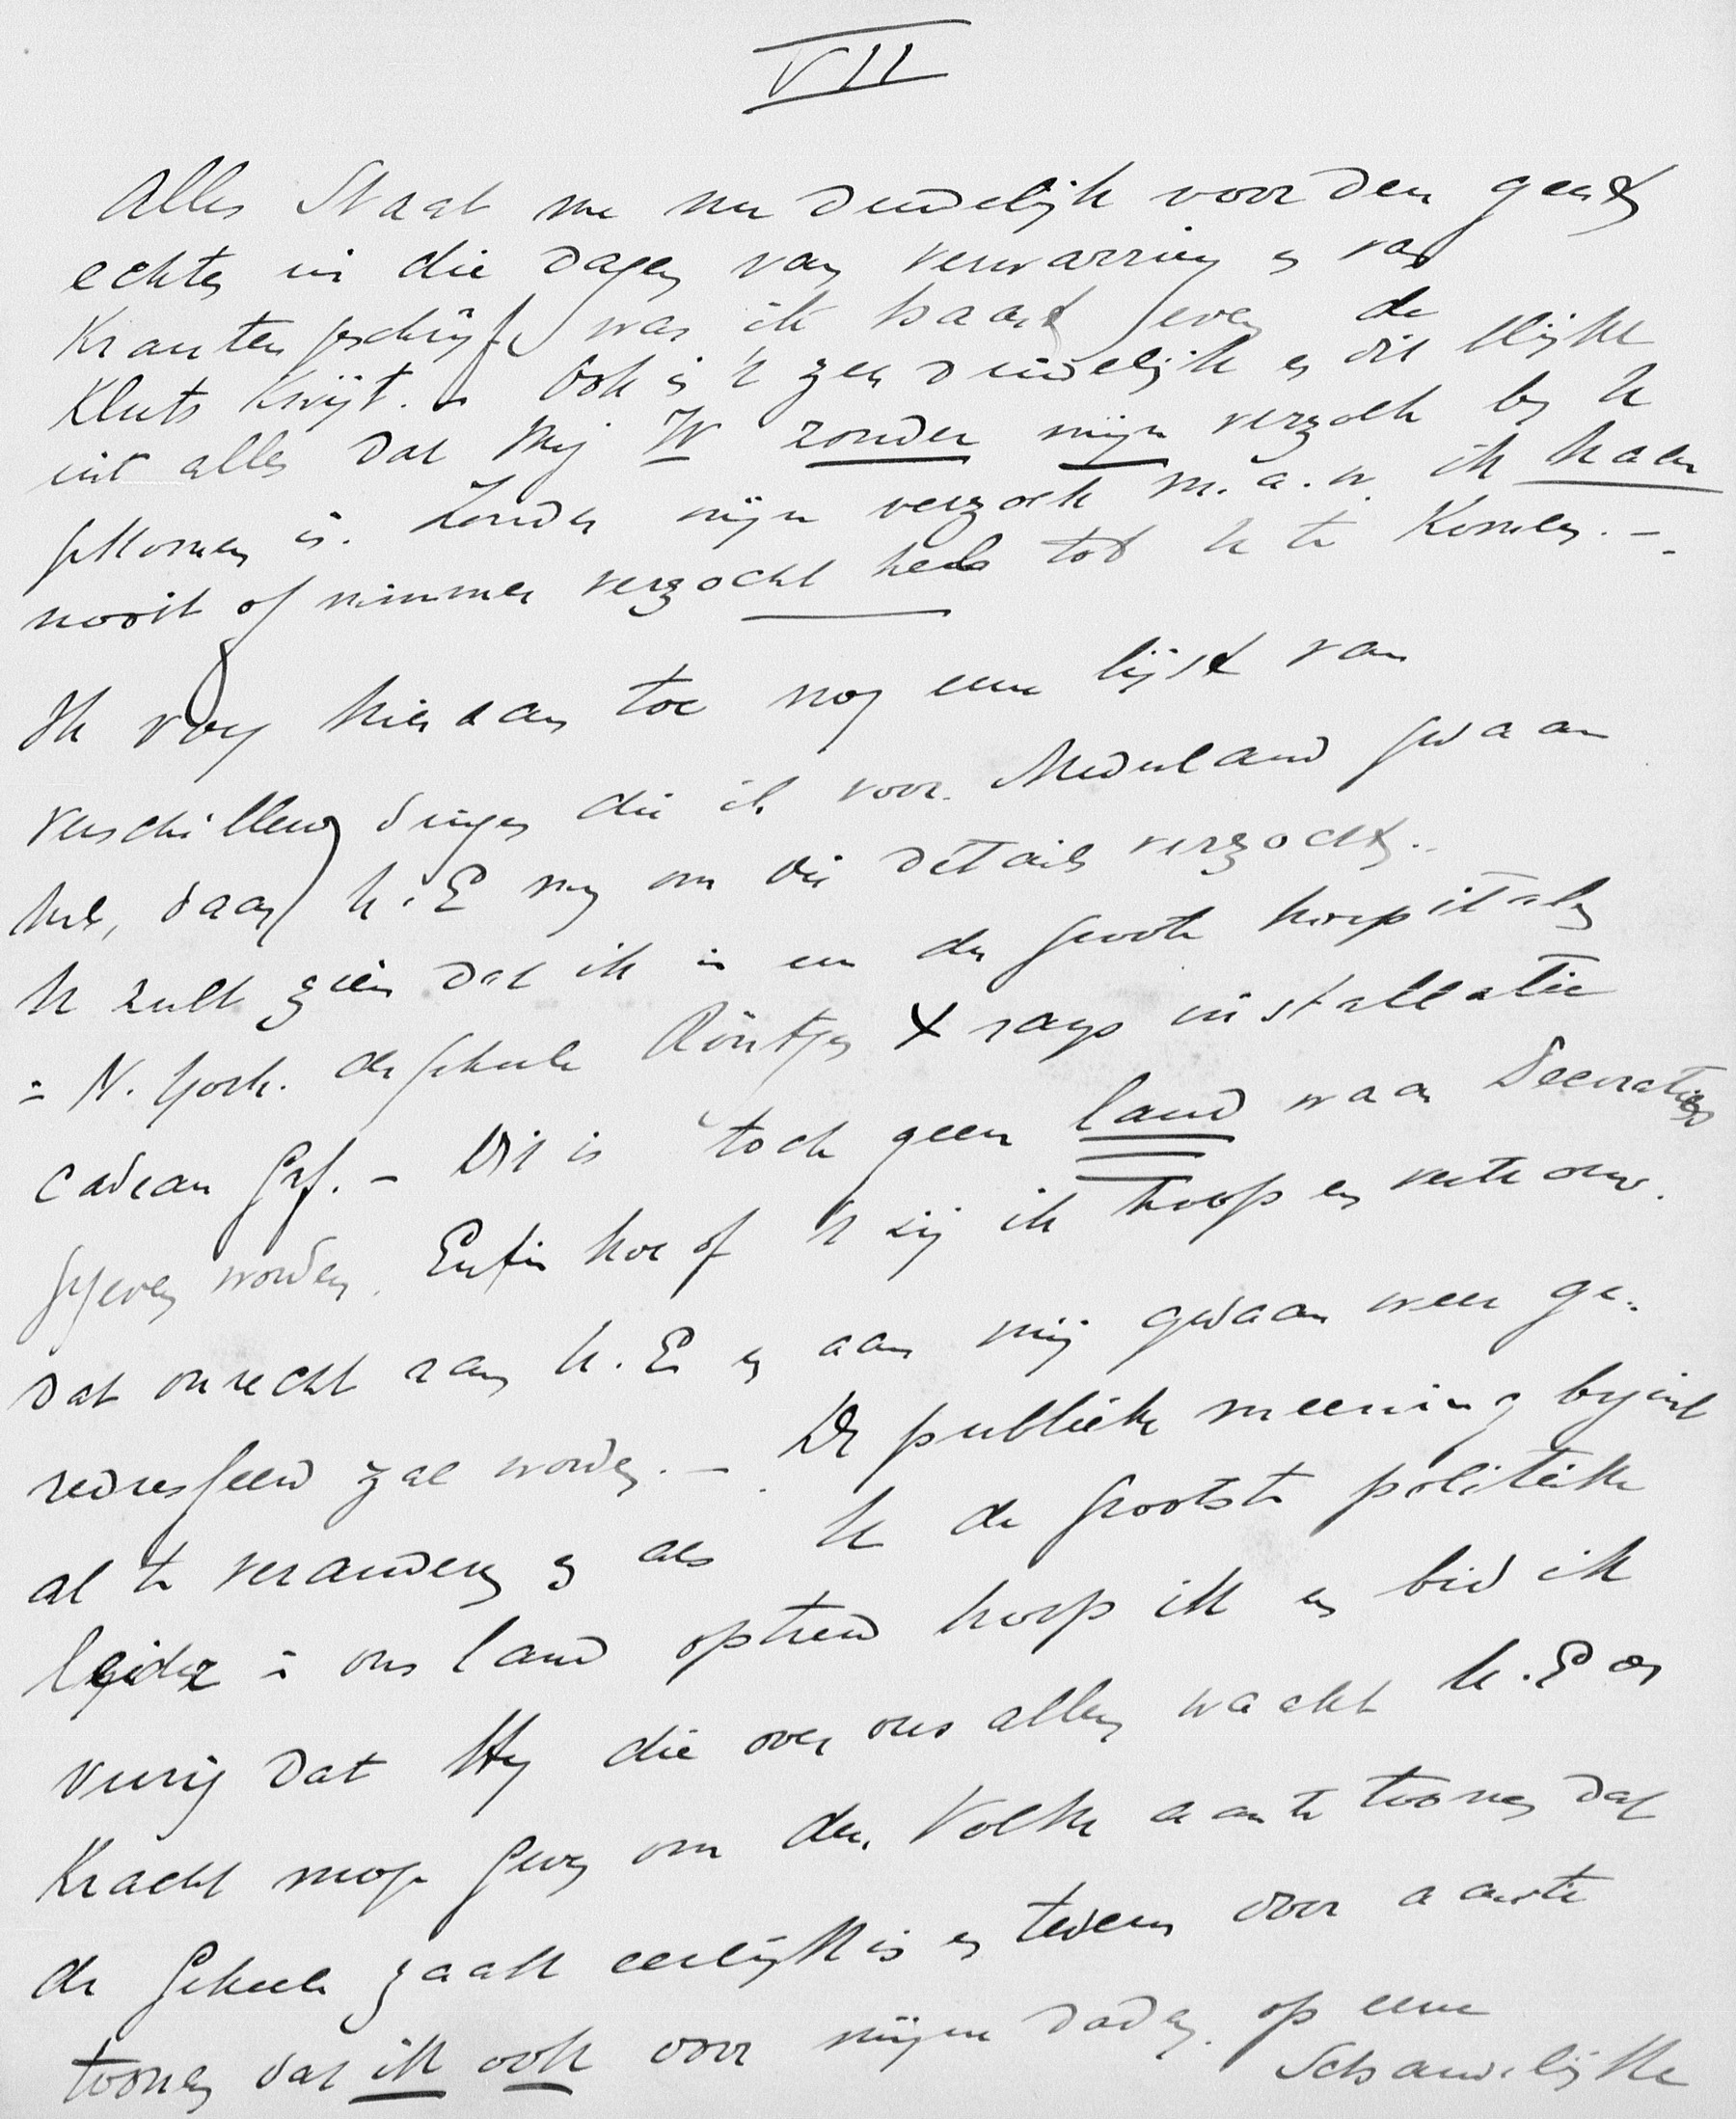 VII
Alles staat me nu duidelijk voor den geest
echter in die dagen van verwarring en van
Krantengeschrijf was ik haast even de
Kluts Kwijt. - Ook is 't zeer duidelijk en dit blijkt
uit alles dat Mej W zonder mijn verzoek by U
gekomen is. Zonder mijn verzoek m.a.w. ik haar
nooit of nimmer verzocht heb tot U te Komen. -
Ik voeg hieraan toe nog eene lijst van
verschillende dingen die ik voor Nederland gedaan
heb, daar U.E my om die détails verzocht.
U zult zien dat ik in een der groote hospitalen
in N. York. de geheele Röntgen X rays installatie
cadeau gaf. - Dit is toch geen land waar Decoraties
gegeven worden. Enfin hoe of 't zij ik hoop en vertrouw.
Dat onrecht aan U.E en aan mij gedaan weer ge-
redresseerd zal worden. - De publieke meening begint
al te veranderen en als U de grootste politieke
leider in ons land optreed hoop ik en bid ik
vurig dat Hy die over ons allen wacht U.E de
Kracht moge geven om den Volke aan te toonen dat
de geheele zaak eerlijk is en tevens voor aan te
toonen dat ik ook voor mijne daden op eene
schandelijke